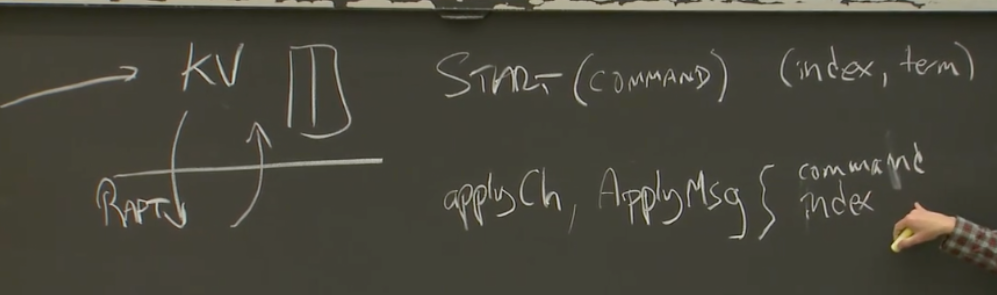 KV
RAFT
START (COMMAND) (index, term)
applyCh, ApplyMsg { command
index